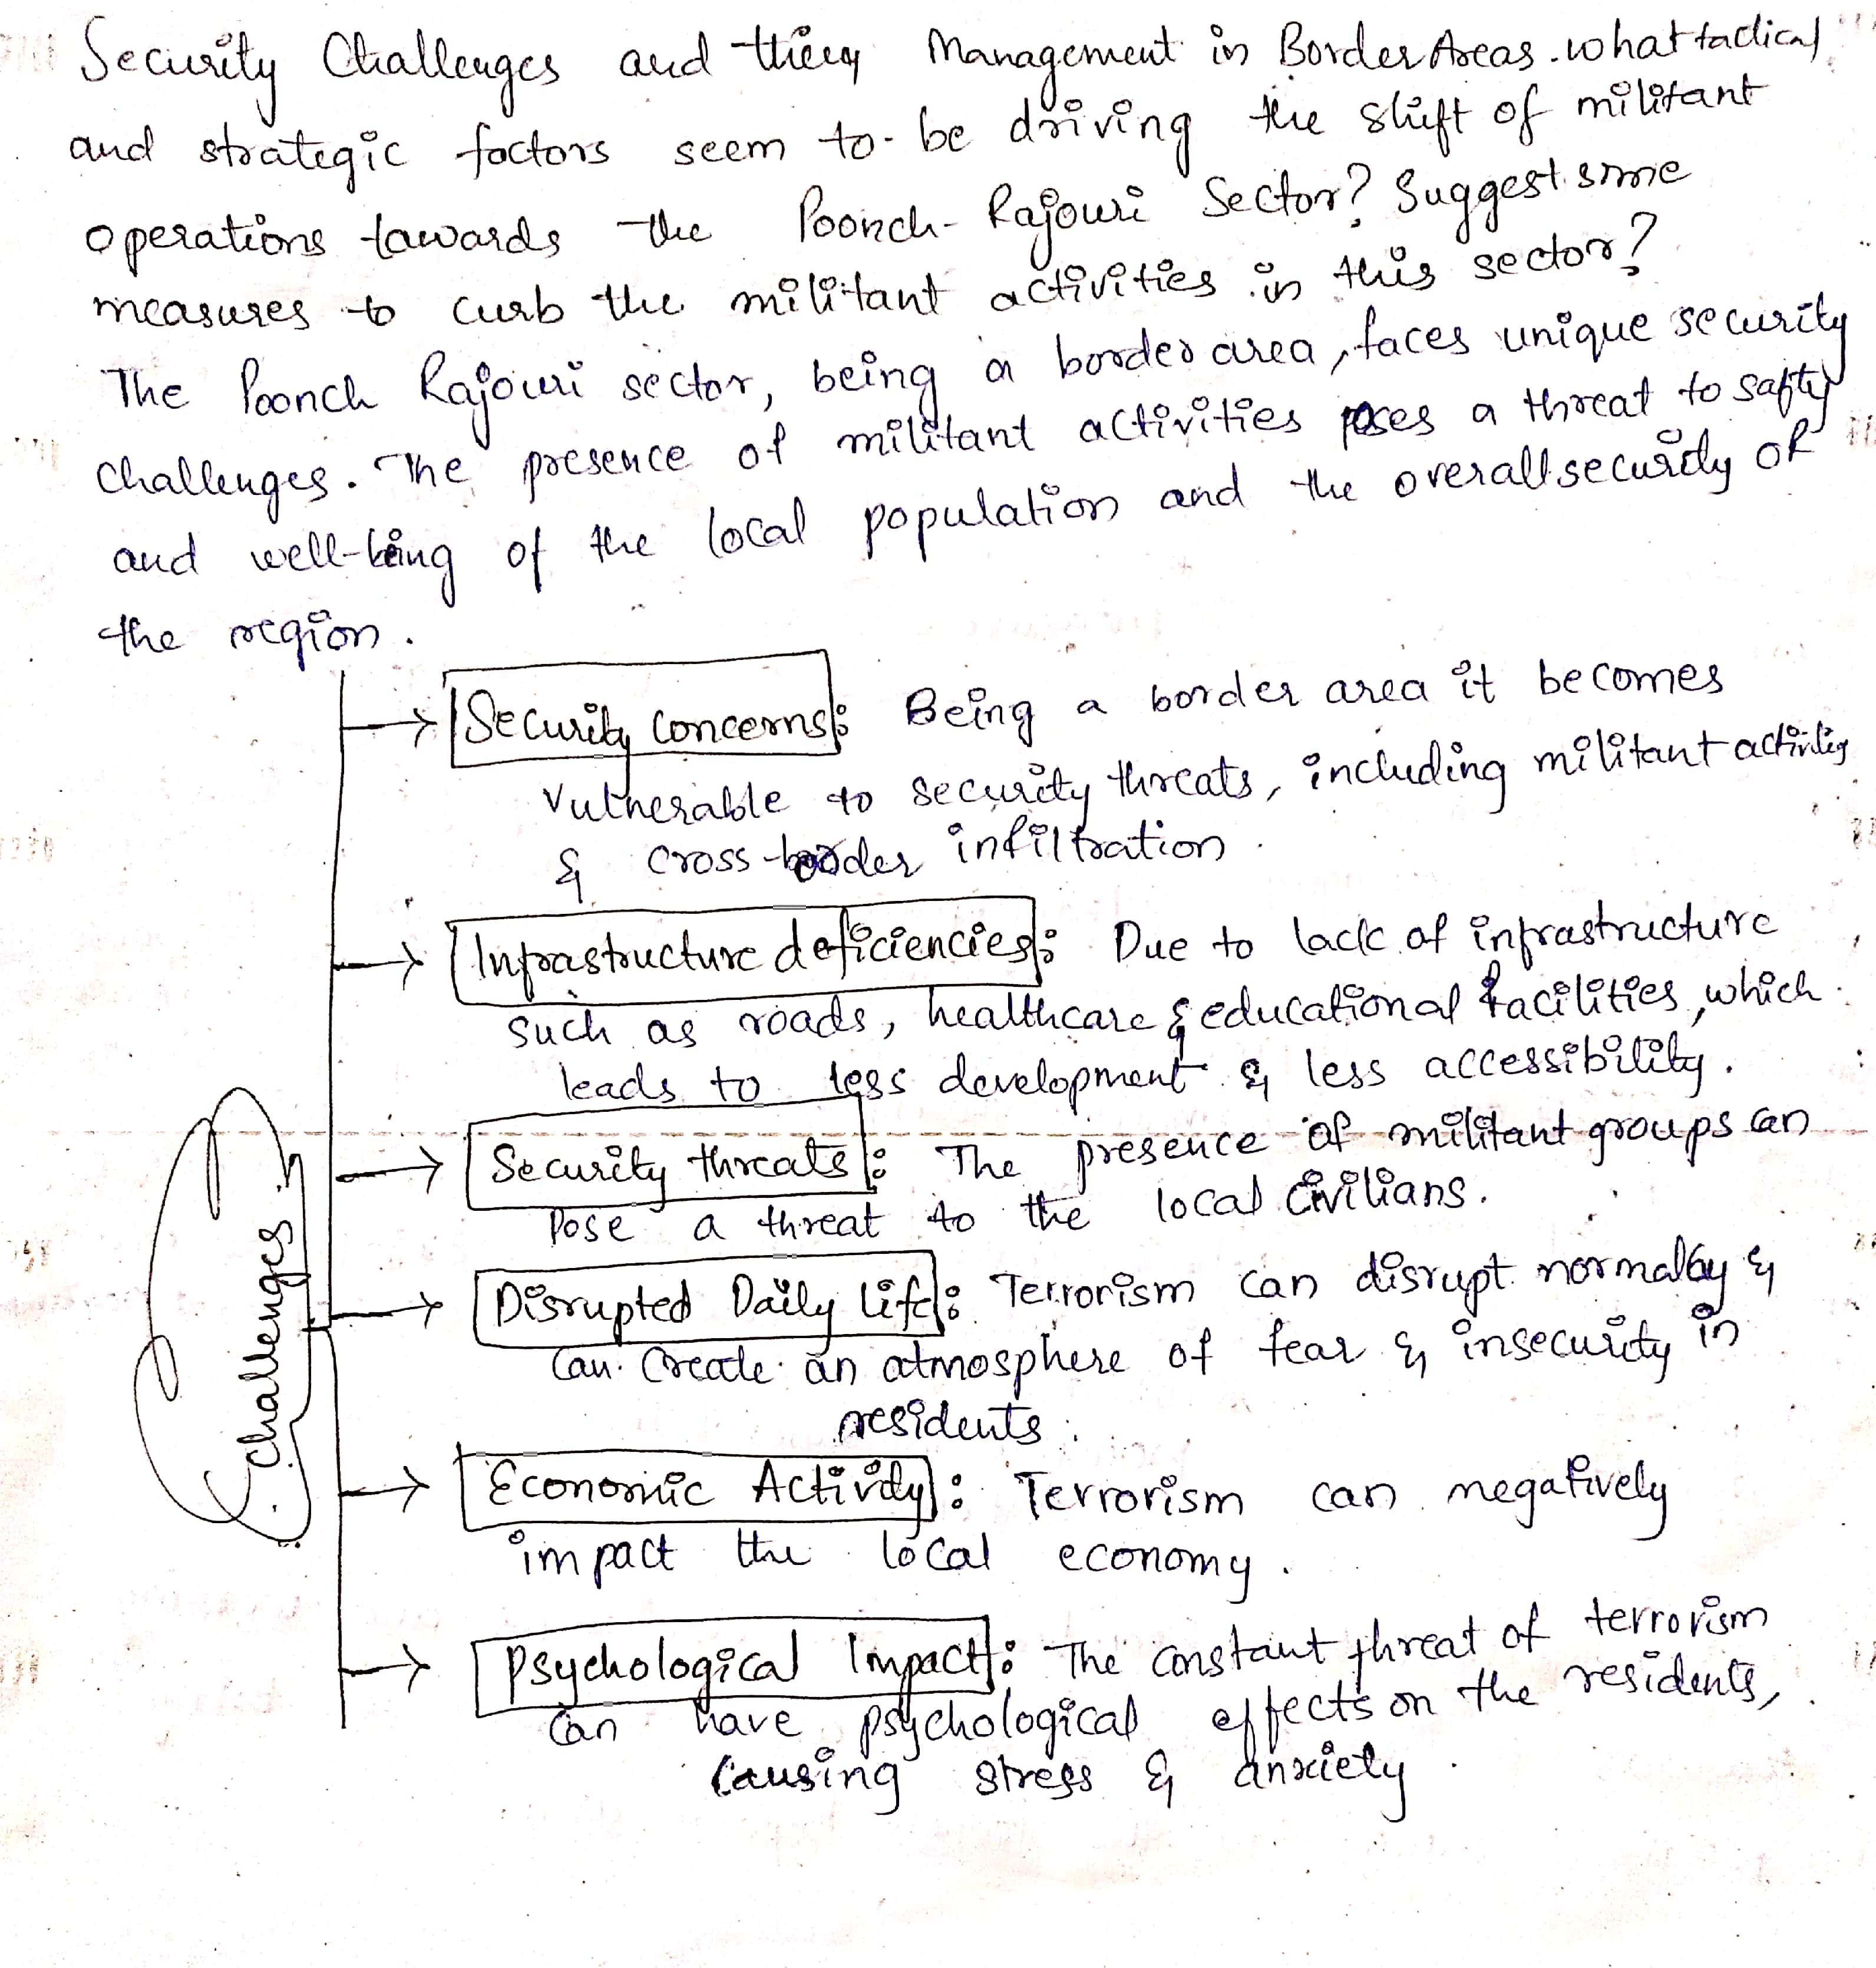 Security Challenges and their Management in Border Areas. what tactical
and strategic factors seem to be driving the shift of militant
operations towards the Poonch-Rajouri Sector? Suggest some
measures to curb the militant activities in this sector?
The Poonch Rajouri sector, being a border area, faces unique security
challenges. The presence of militant activities poses a threat to safty
and well-being of the local population and the overall security of
the region.
Security Concerns: Being a border area it becomes
vulnerable to security threats, including militant activities
& cross-border infiltration.
Infrastructure deficiencies: Due to lack of infrastructure
such as roads, healthcare & educational facilities, which
leads to less development & less accessibility.
Security threats: The presence of militant groups can
pose a threat to the local civilians.
Disrupted Daily Life: Terrorism can disrupt normalcy &
can create an atmosphere of fear & insecurity in
residents.
Challenges
Economic Activity: Terrorism can negatively
impact the local economy.
Psychological Impact: The constant threat of terrorism
can have psychological effects on the residents,
causing stress & anxiety.